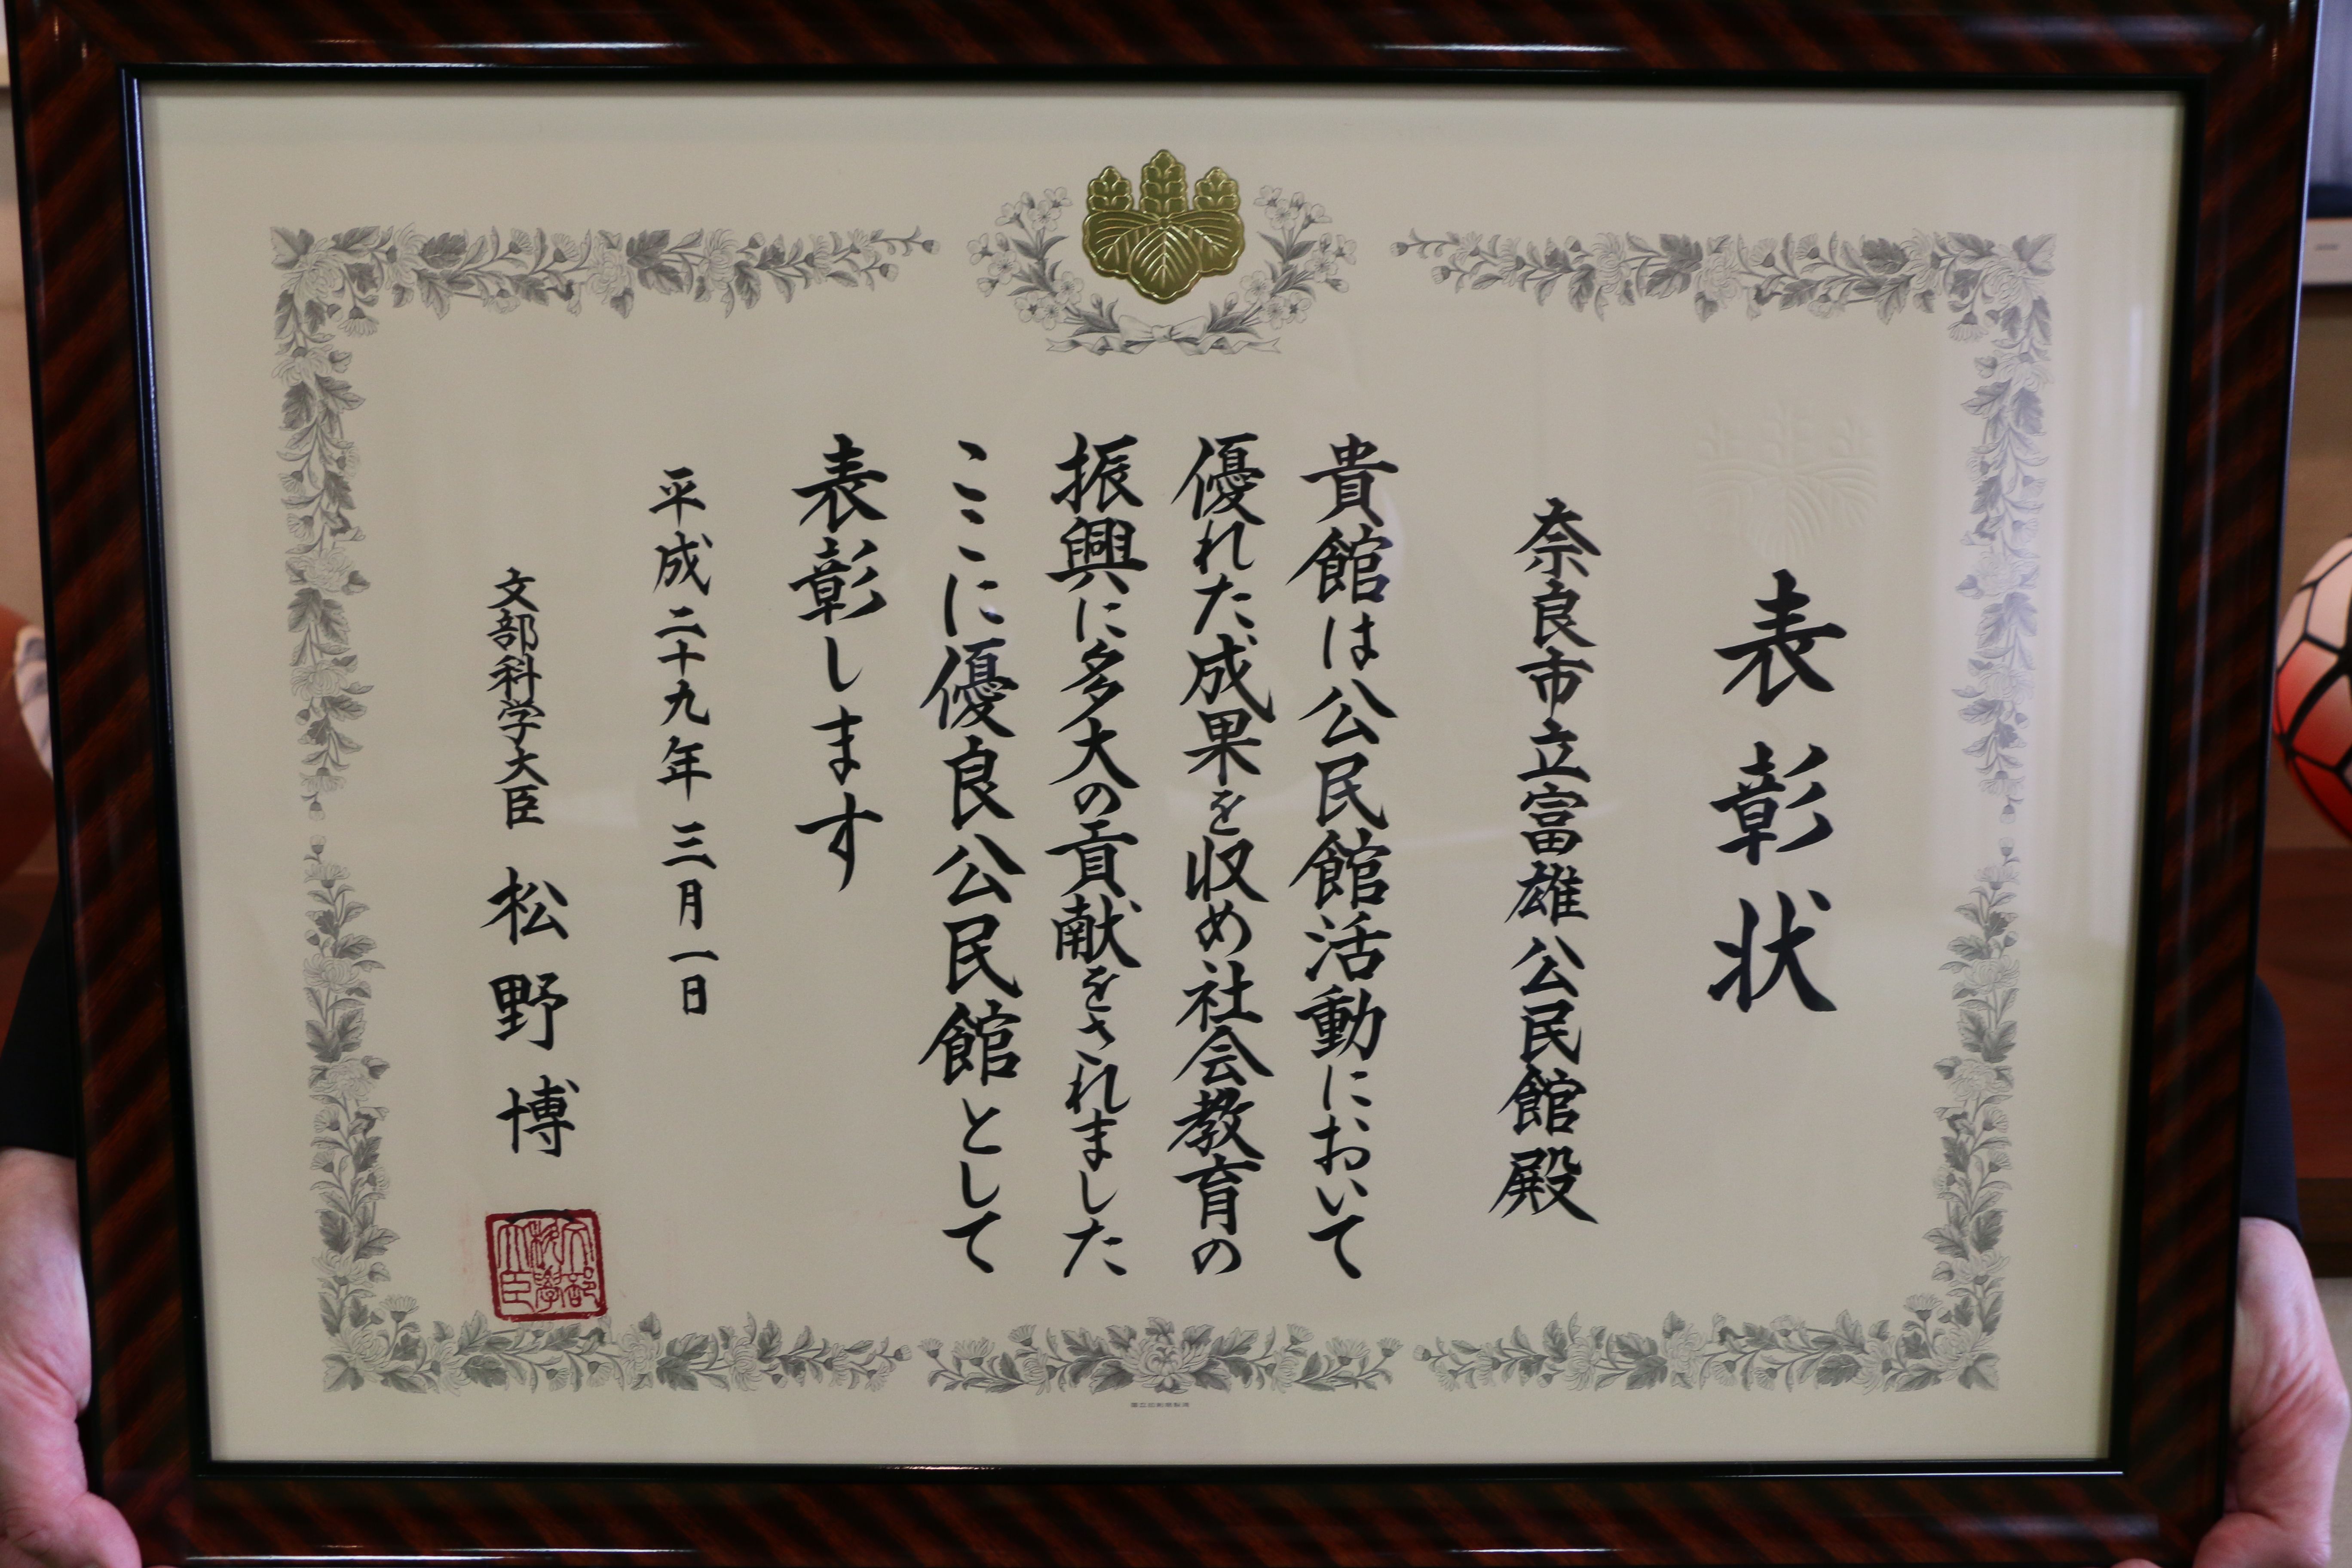 表彰状
奈良市立富雄公民館殿
貴館は公民館活動において
優れた成果を収め社会教育の
振興に多大の貢献をされました
ここに優良公民館として
表彰します
平成二十九年三月一日
文部科学大臣 松野博一
文部科学大臣